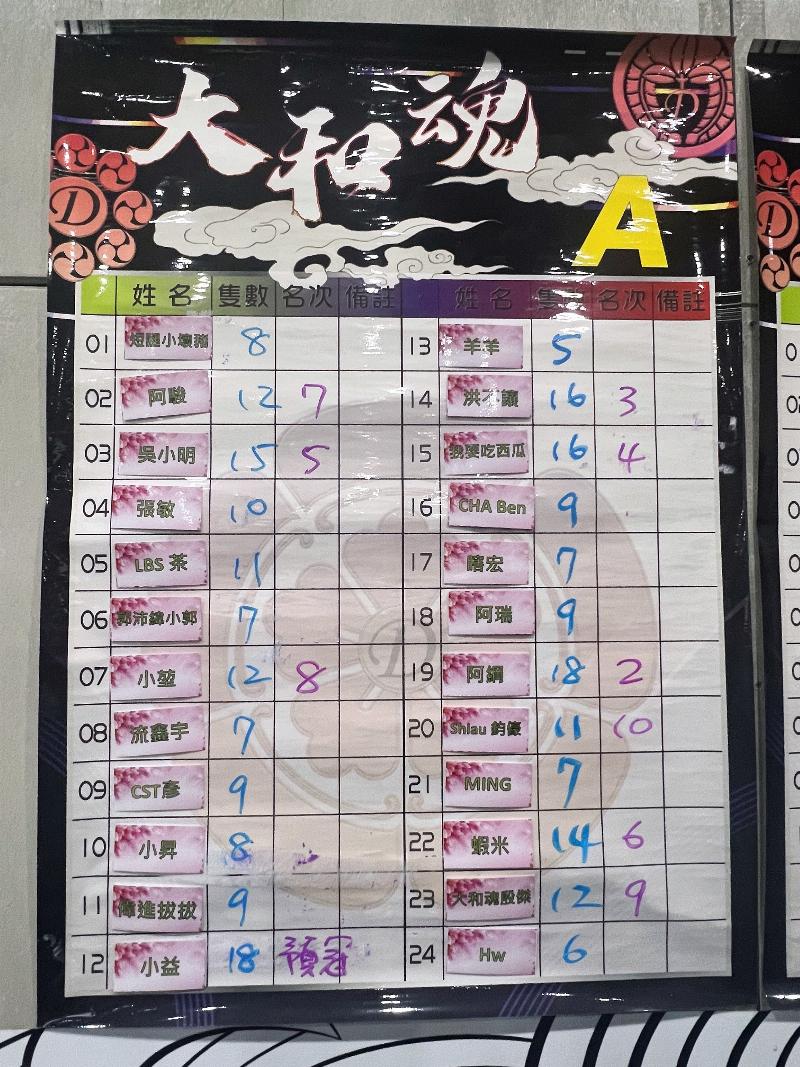 大和魂
A
D
姓名 隻數 名次 備註 姓名 隻 名次 備註
01 8 13 羊羊 5
02 阿駿 12 7 14 洪不讓 16 3
03 吳小明 15 5 15 我要吃西瓜 16 4
04 張敏 10 16 CHA Ben 9
05 LBS 茶 11 17 宏 7
06 郭沛緯小郭 7 18 阿瑞 9
07 小堃 12 8 19 阿鋼 18 2
08 流鑫宇 7 20 Shiau 鈞 11 10
09 CST彥 9 21 MING 7
10 小昇 8 22 蝦米 14 6
11 進拔拔 9 23 大和魂殷傑 12 9
12 小益 18 預冠 24 Hw 6